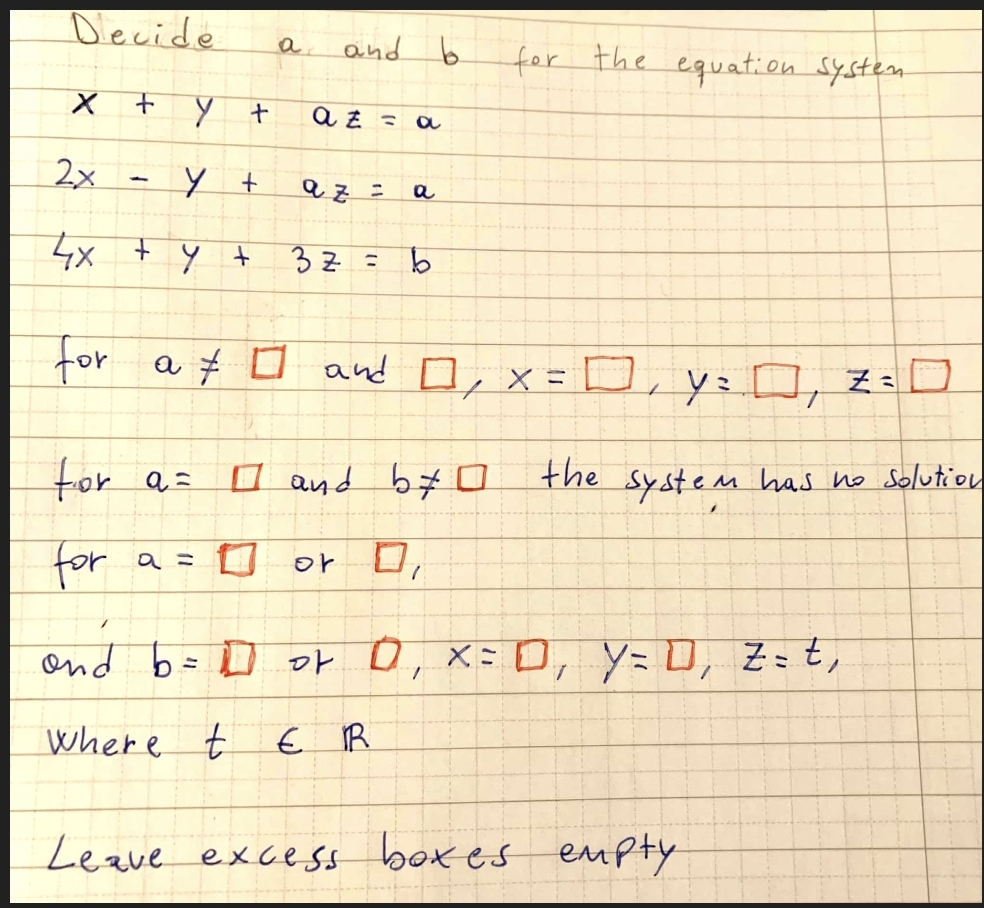 Decide a and b for the equation system
x + y + az = a
2x - y + az = a
4x + y + 3z = b
for a ≠ □ and □, x = □, y = □, z = □
for a = □ and b ≠ □ the system has no solution
for a = □ or □,
and b = □ or □, x = □, y = □, z = t,
where t ∈ ℝ
Leave excess boxes empty